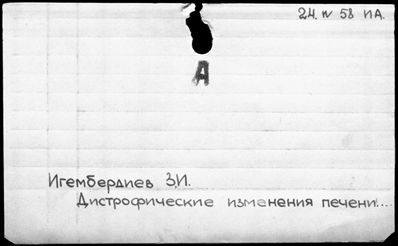 24. IV 58 ИА.
А
Игембердиев З.И.
Дистрофические изменения печени...